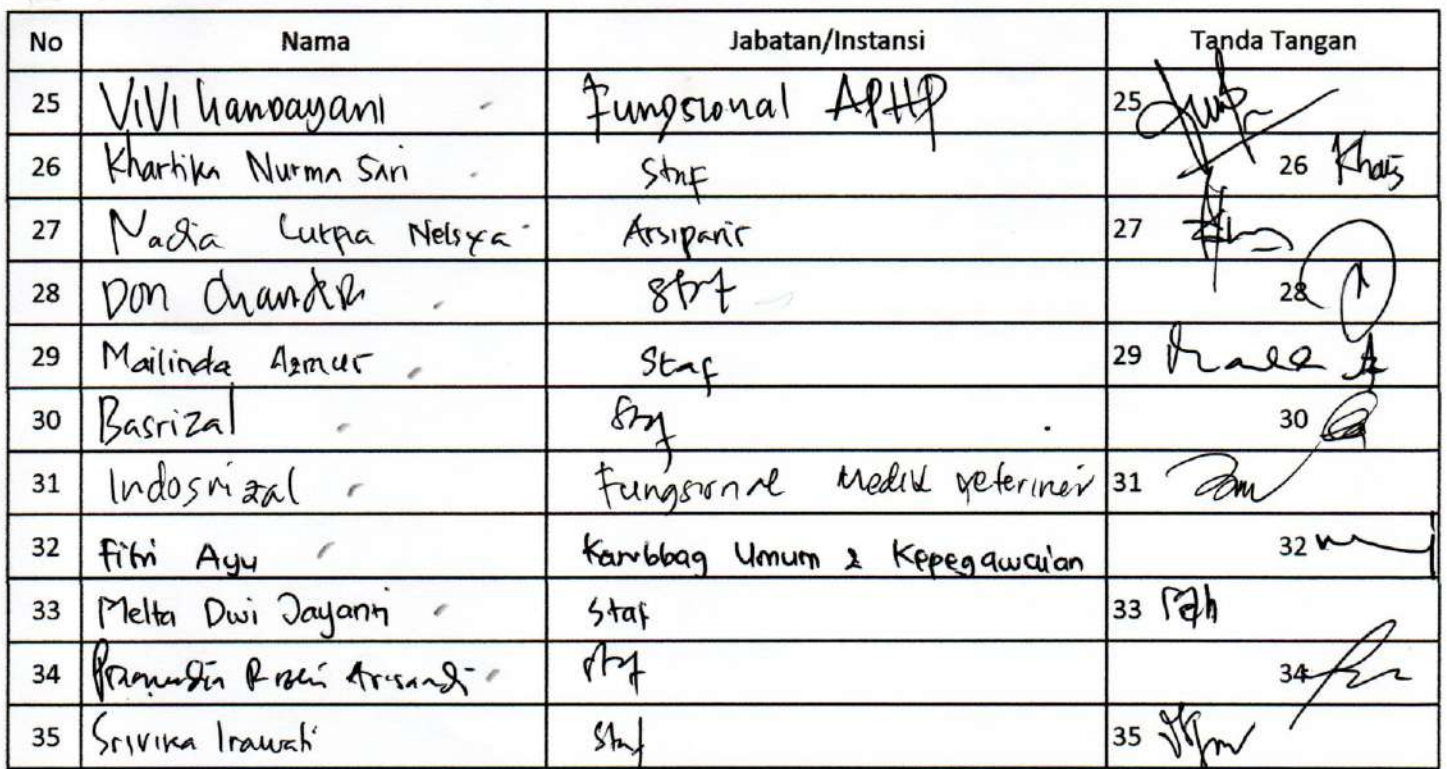 No Nama Jabatan/Instansi Tanda Tangan
25 VIVI Handayani Fungsional APHP 25
26 Khartika Nurma Sari Staf 26
27 Nadia Lutpia Nelsya Arsiparis 27
28 Don Chandra Staf 28
29 Mailinda Azmur Staf 29
30 Basrizal Staf 30
31 Indosrizal Fungsional Medik Veteriner 31
32 Fitri Ayu Kasubbag Umum & Kepegawaian 32
33 Melta Dwi Jayanti Staf 33
34 Staf 34
35 Srivika Irawati Staf 35